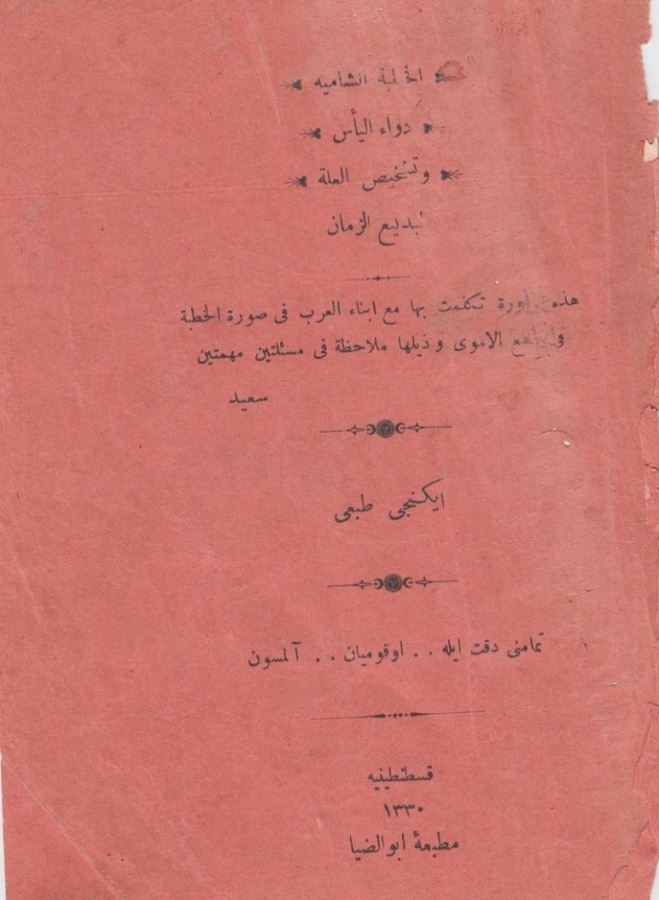 الخطبة الشاميه
دواء اليأس
وتشخيص العلة
لبديع الزمان
هذه تكلمت بها مع ابناء العرب فى صورة الخطبة
الاموى وذيلها ملاحظة فى مسئلتين مهمتين
سعيد
ايكنجى طبعى
تمامنى دقت ايله . . اوقوميان . . آلمسون
قسطنطينيه
١٣٣٠
مطبعۀ ابوالضيا